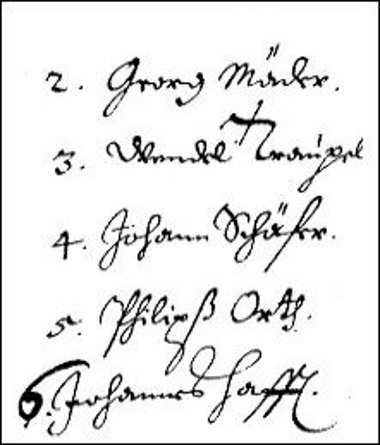 2. Georg Mäder.
3. Wendel Traupel
4. Johann Schäfer.
5. Philipß Orth.
6. Johannes Hafft.